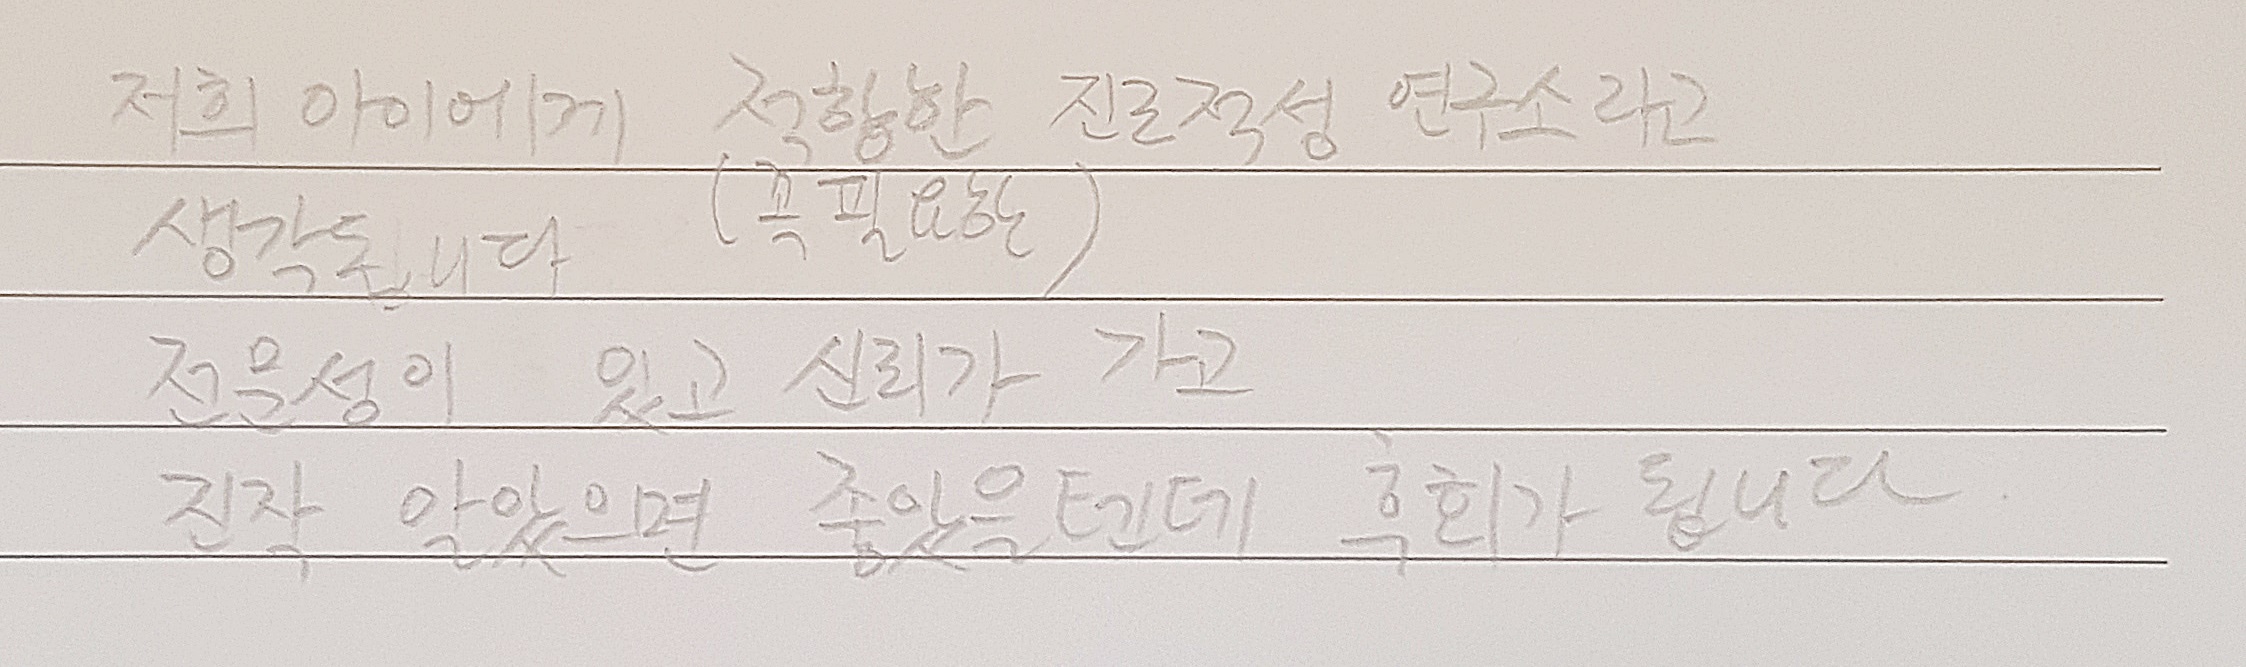 저희 아이에게 적합한 진로적성 연구소라고
(꼭 필요한)
생각됩니다
전문성이 있고 신뢰가 가고
진작 알았으면 좋았을텐데 후회가 됩니다.